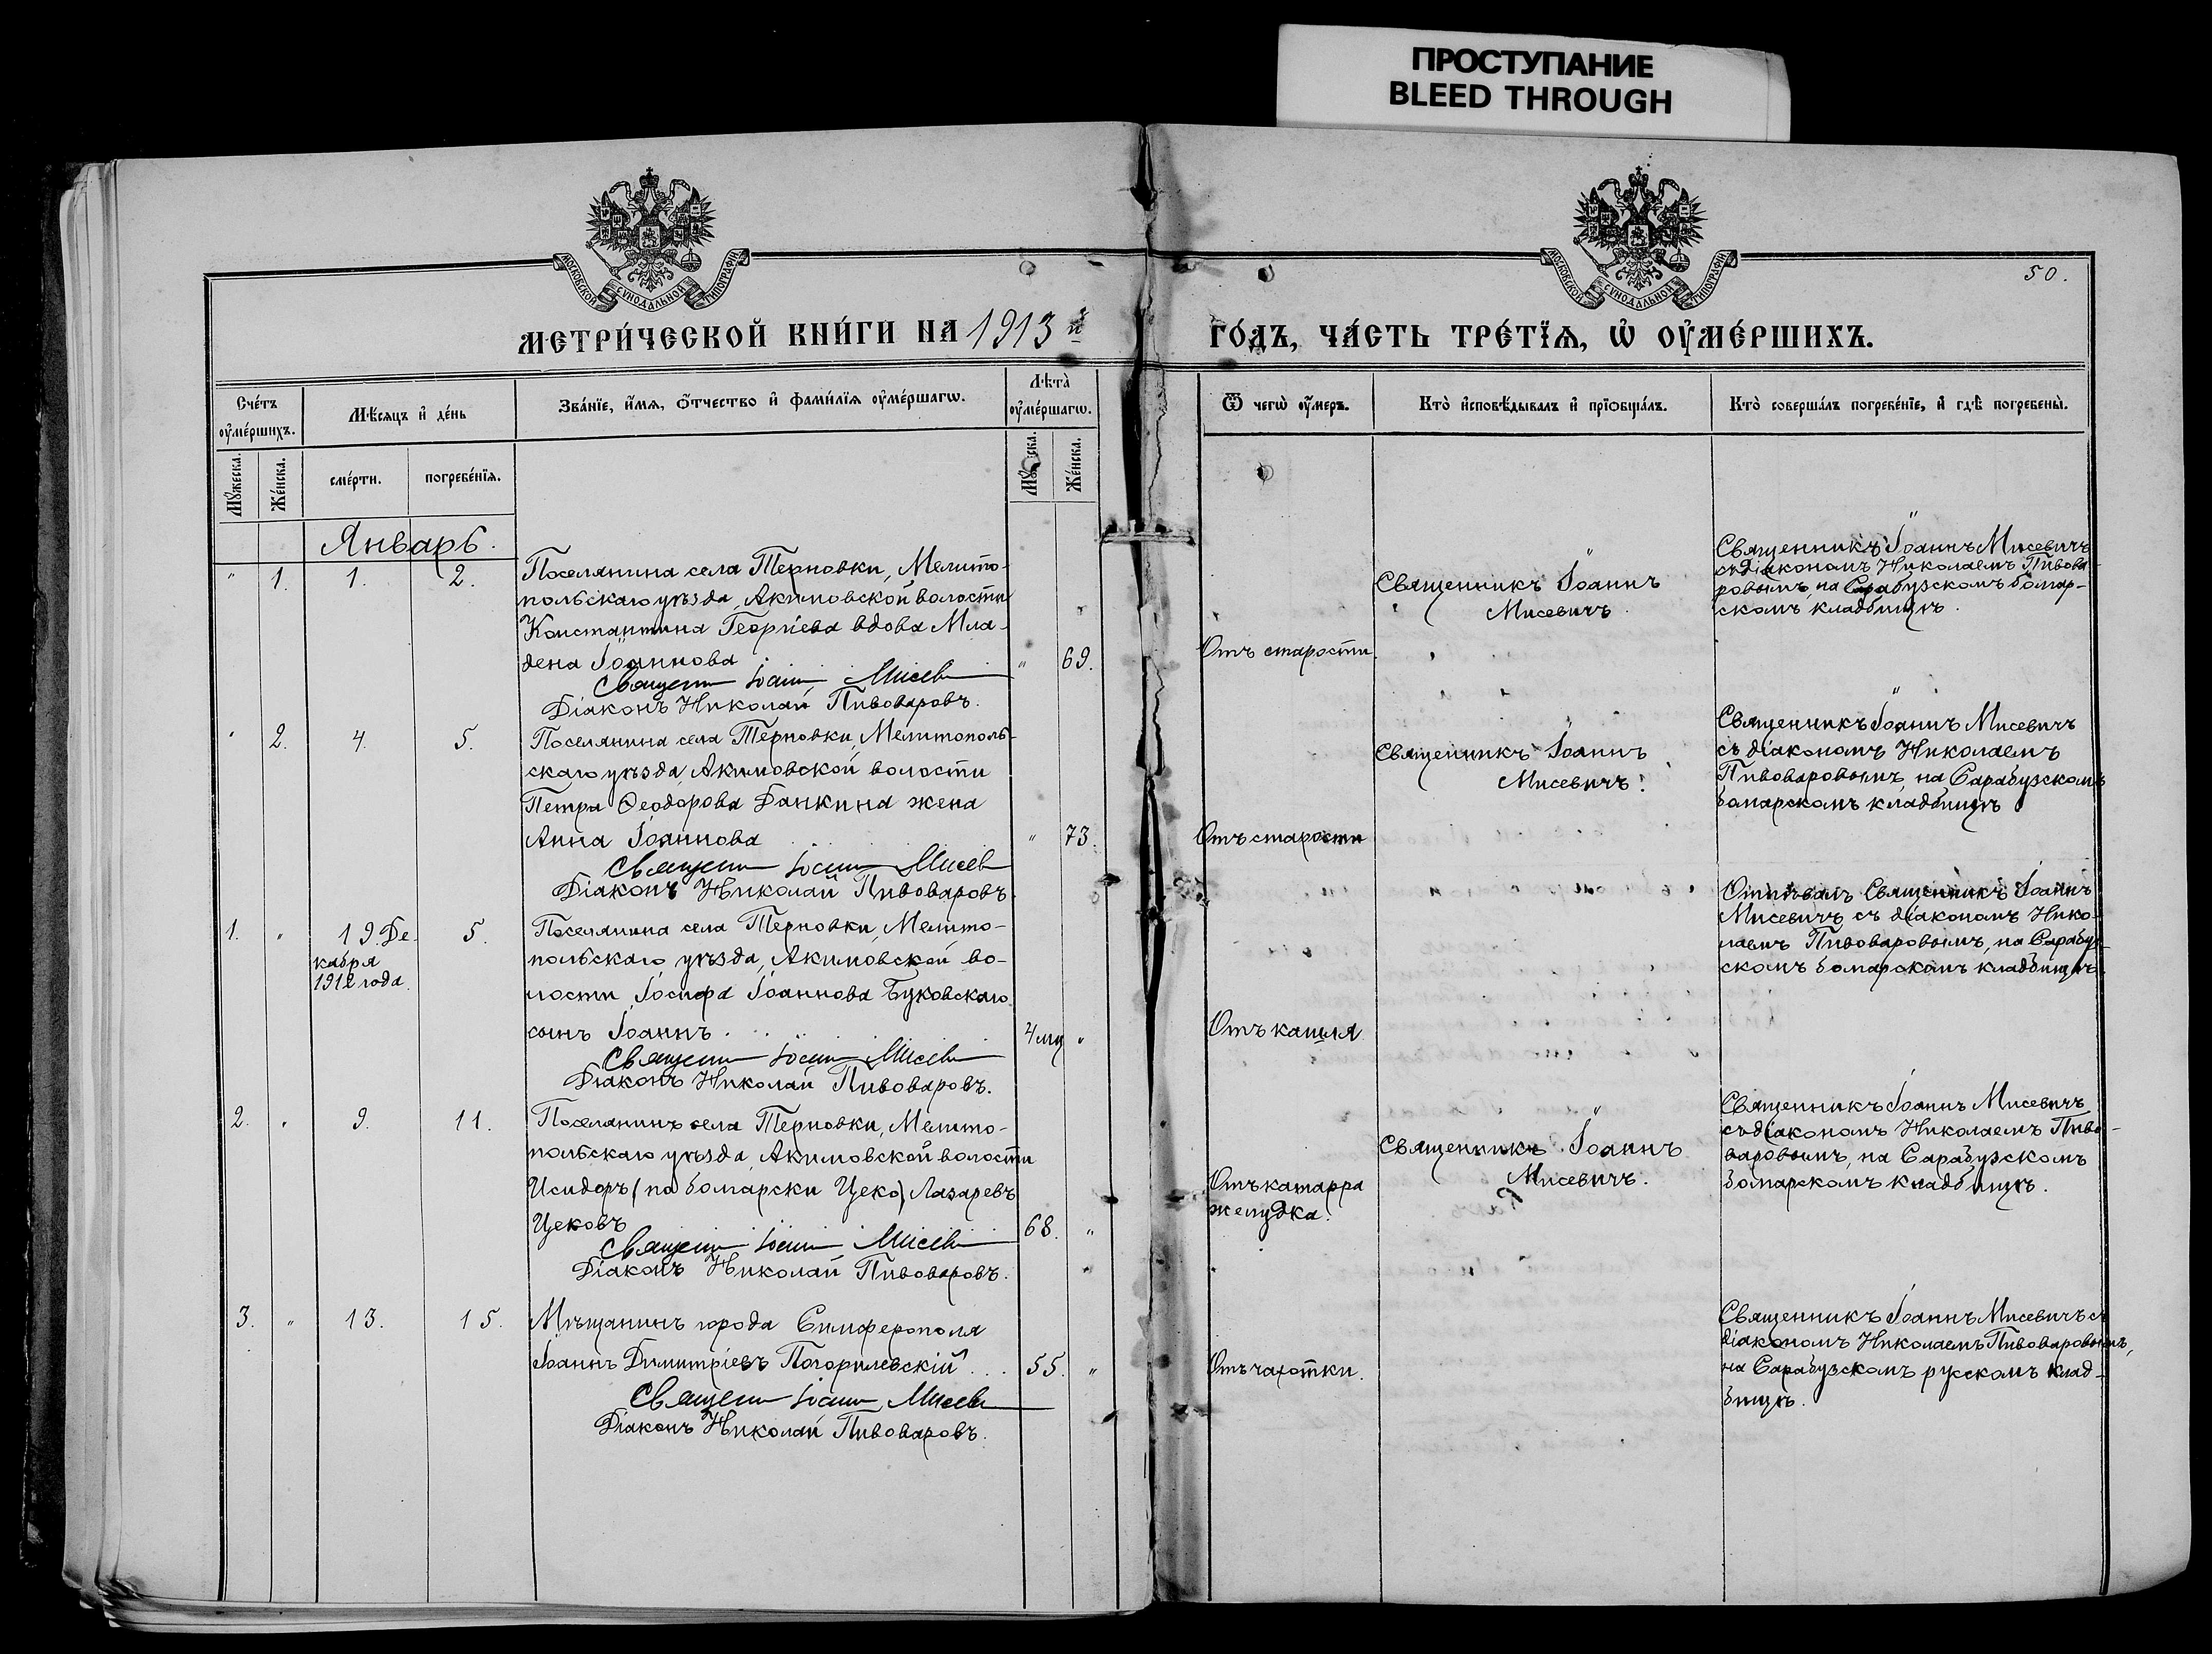 ПРОСТУПАНИЕ
BLEED THROUGH
МОСКОВСКОЙ СѴНОДАЛЬНОЙ ТИПОГРАФІИ
МОСКОВСКОЙ СѴНОДАЛЬНОЙ ТИПОГРАФІИ
50.
МЕТРИ́ЧЕСКОЙ КНИ́ГИ НА 1913й
ГО́ДЪ, ЧА́СТЬ ТРЕ́ТЇѦ, Ѡ҆ ОУ҆МЕ́РШИХЪ.
Сче́тъ оу҆ме́ршихъ.
Мѣ́сяцъ и҆ де́нь
Зва́нїе, и҆́мѧ, ѻ҆́тчество и҆ фами́лїѧ оу҆ме́ршагѡ.
Лѣта̀ оу҆ме́ршагѡ.
Ѿ чегѡ̀ оу҆́меръ.
Кто̀ и҆сповѣ́дывалъ и҆ прїѡбща́лъ.
Кто̀ соверша́лъ погребе́нїе, и҆ гдѣ̀ погребены̀.
Мꙋ́жеска.
Же́нска.
сме́рти.
погребе́нїѧ.
Мꙋ́жеска.
Же́нска.
Январь.
" 1. 1. 2.
Поселянина села Терновки, Мелито-
польскаго уѣзда, Акимовской волости
Константина Георгіева вдова Мла-
дена Іоаннова " 69.
Священ Іоанн Мисев
Діаконъ Николай Пивоваровъ.
Отъ старости.
Священникъ Іоаннъ
Мисевичъ.
Священникъ Іоаннъ Мисевичъ
съ діакономъ Николаемъ Пивова-
ровымъ, на Сарабузскомъ болгар-
скомъ кладбищѣ.
" 2. 4. 5.
Поселянина села Терновки, Мелитополь-
скаго уѣзда, Акимовской волости
Петра Ѳеодорова Банкина жена
Анна Іоаннова " 73.
Священ Іоанн Мисев
Діаконъ Николай Пивоваровъ.
Отъ старости
Священникъ Іоаннъ
Мисевичъ.
Священникъ Іоаннъ Мисевичъ
съ діакономъ Николаемъ
Пивоваровымъ, на Сарабузскомъ
болгарскомъ кладбищѣ
1. " 19. Де- 5.
кабря
1912 года.
Поселянина села Терновки, Мелито-
польскаго уѣзда, Акимовской во-
лости, Іосифа Іоаннова Буковскаго
сынъ Іоаннъ . . . 4 мц "
Священ Іоанн Мисев
Діаконъ Николай Пивоваровъ.
Отъ кашля
Отпѣвалъ Священникъ Іоаннъ
Мисевичъ съ діакономъ Нико-
лаемъ Пивоваровымъ, на Сарабуз-
скомъ болгарскомъ кладбищѣ.
2. " 9. 11.
Поселянинъ села Терновки, Мелито-
польскаго уѣзда, Акимовской волости
Исидоръ (по болгарски Цеко) Лазаревъ
Цековъ 68. "
Священ Іоанн Мисев
Діаконъ Николай Пивоваровъ.
Отъ катарра
желудка.
Священникъ Іоаннъ
Мисевичъ.
Священникъ Іоаннъ Мисевичъ
съ діакономъ Николаемъ Пиво-
варовымъ, на Сарабузскомъ
болгарскомъ кладбищѣ.
3. " 13. 15.
Мѣщанинъ города Симферополя
Іоаннъ Димитріевъ Погорилевскій . . . 55. "
Священ Іоанн Мисев
Діаконъ Николай Пивоваровъ.
Отъ чахотки.
Священникъ Іоаннъ Мисевичъ съ
діакономъ Николаемъ Пивоваровымъ,
на Сарабузскомъ русскомъ клад-
бищѣ.